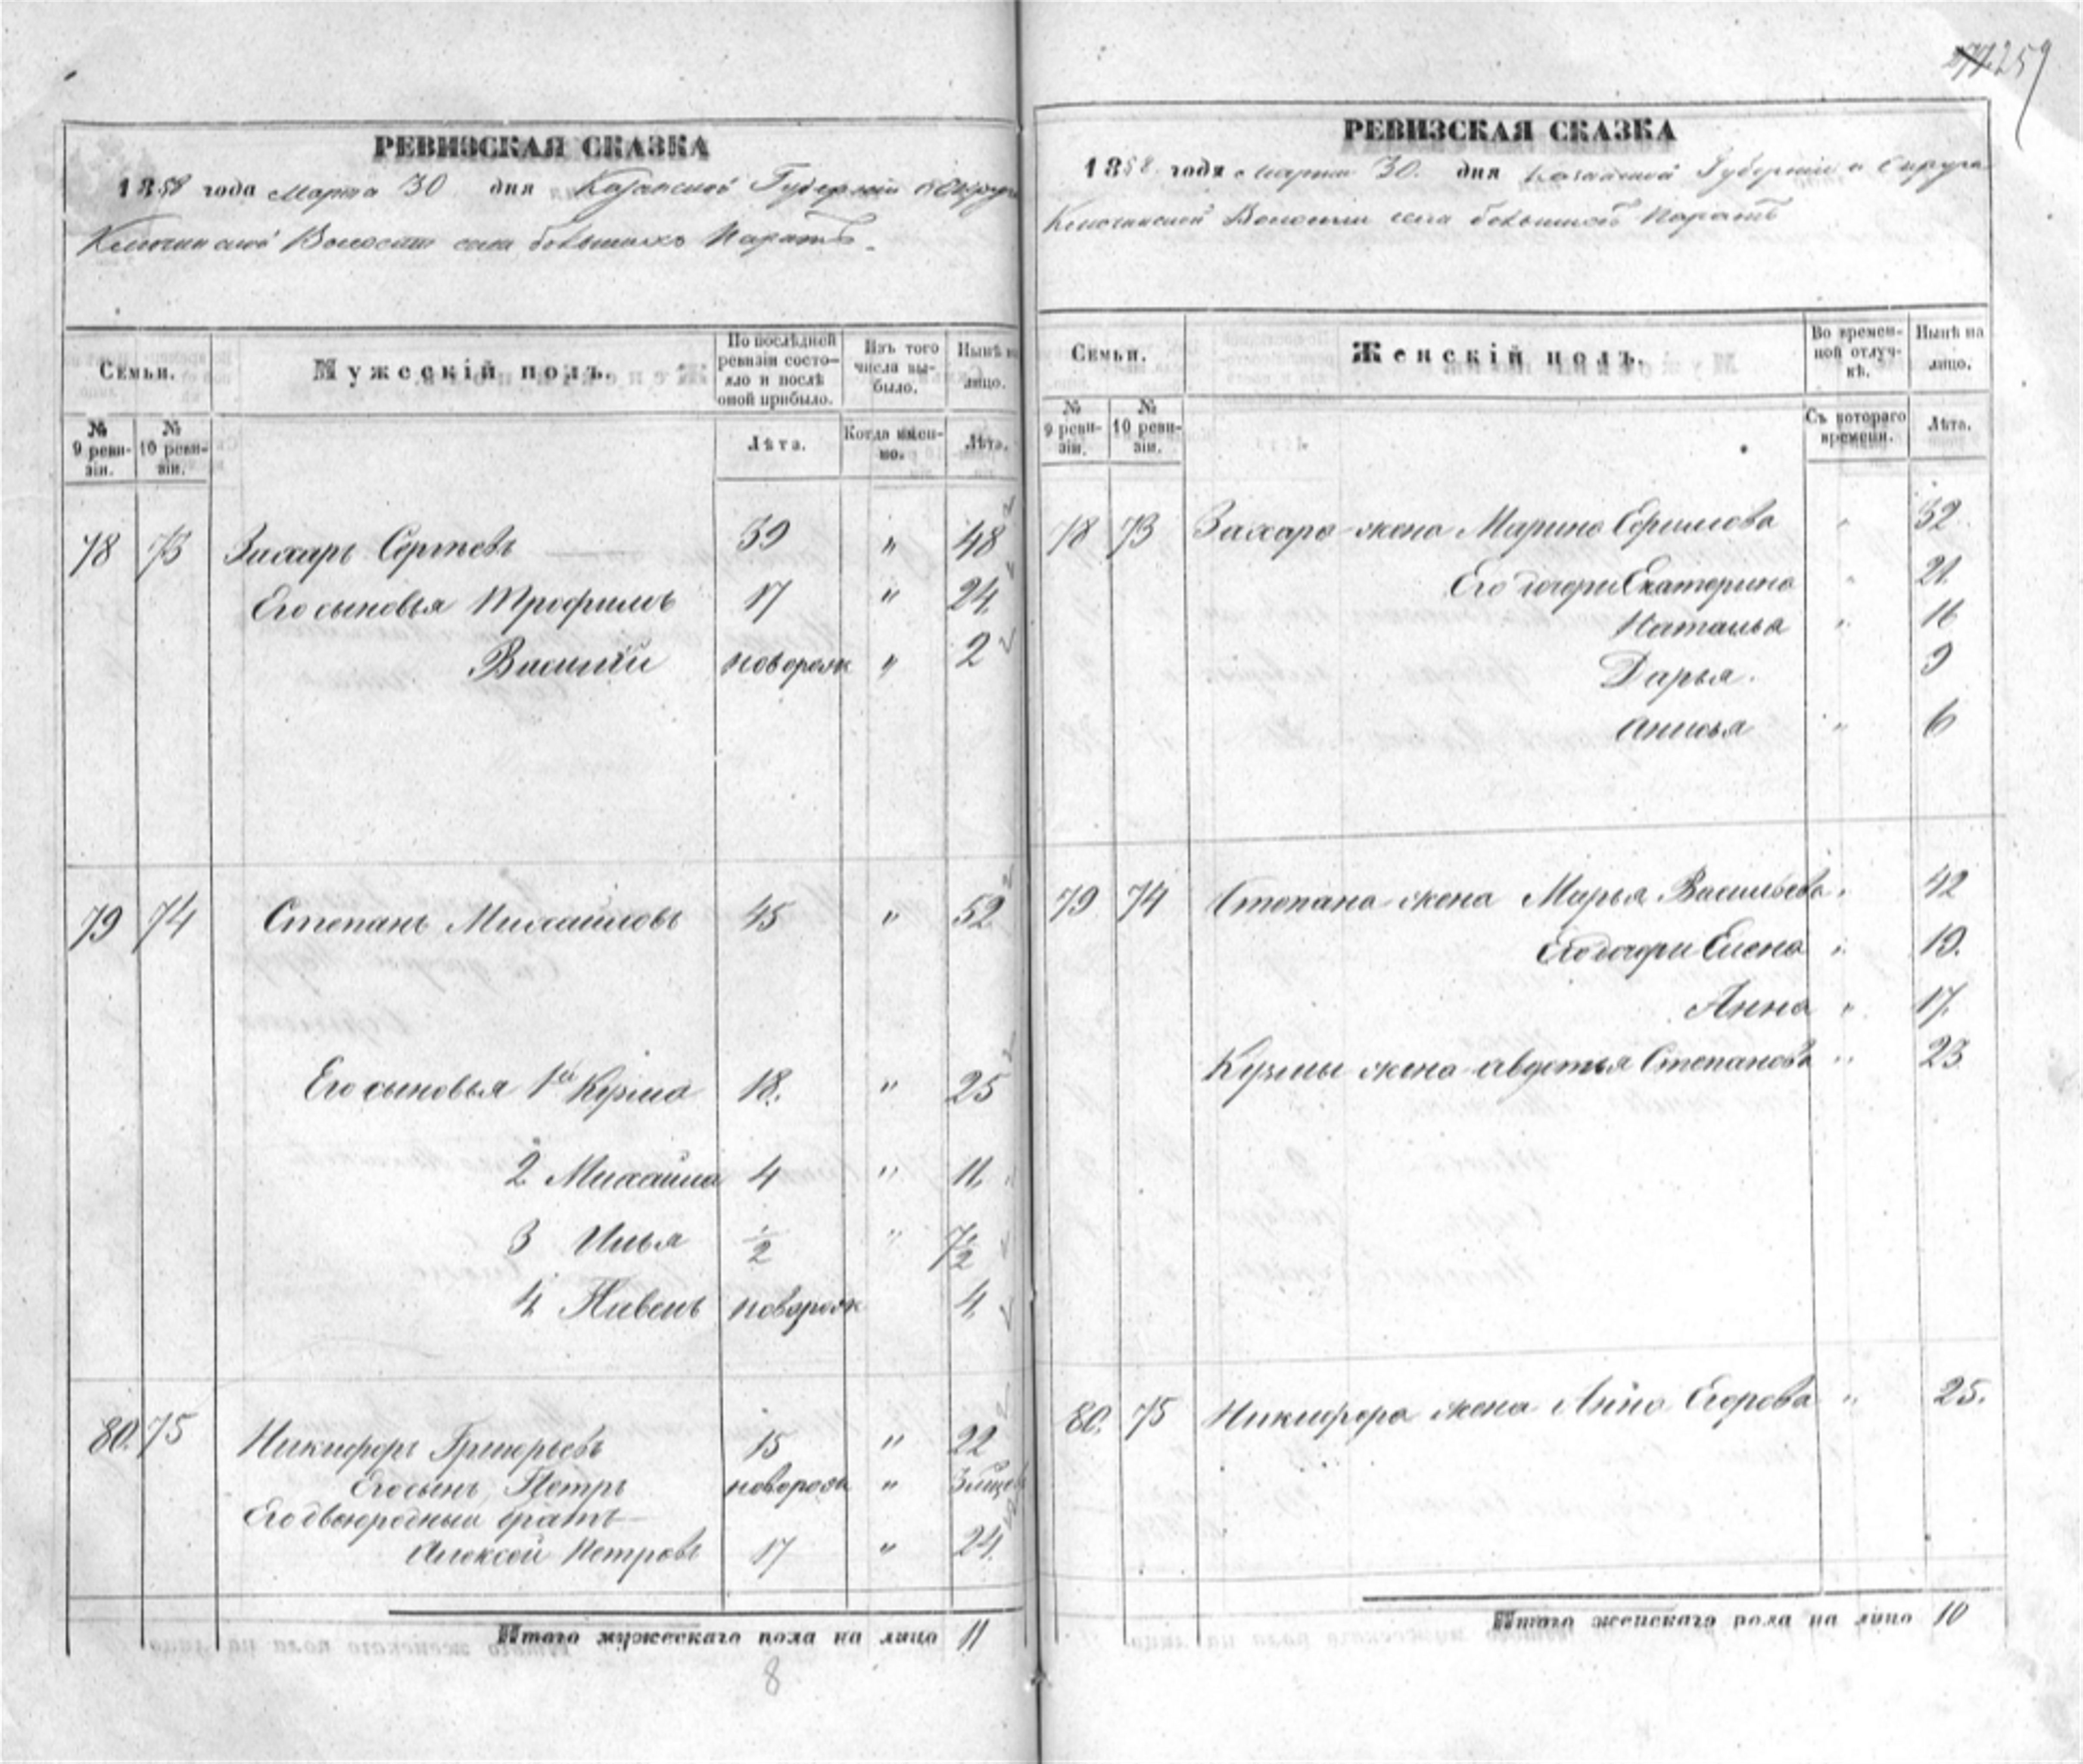 277. 259
РЕВИЗСКАЯ СКАЗКА
1858 года Марта 30 дня Казанской Губерніи и Округа
Ключинской Волости села большихъ Паратъ.
Семьи.
Мужескій полъ.
По послѣдней ревизіи состояло и послѣ оной прибыло.
Изъ того числа выбыло.
Нынѣ на лицо.
№ 9 ревизіи.
№ 10 ревизіи.
Лѣта.
Когда именно.
Лѣта.
78 73 Захаръ Сергѣевъ 39 " 48
Его сыновья Трофимъ 17 " 24
Василій новорож " 2
79 74 Степанъ Михайловъ 45 " 52
Его сыновья 1й Кузма 18. " 25
2 Михайла 4 " 11
3 Илья 1/2 " 7 1/2
4 Павелъ новорож 4
80. 75 Никифоръ Григорьевъ 15 " 22
Его сынъ Петръ новорож "
Его двоюродный братъ
Алексей Петровъ 17 " 24.
Итого мужескаго пола на лицо 11
8
РЕВИЗСКАЯ СКАЗКА
1858 года Марта 30. дня Казанской Губерніи и Округа
Ключинской Волости села большихъ Паратъ
Семьи.
Женскій полъ.
Во временной отлучкѣ.
Нынѣ на лицо.
№ 9 ревизіи.
№ 10 ревизіи.
Съ котораго времени.
Лѣта.
78 73 Захара жена Марина Ефимова " 32
Его дочери Екатерина " 21
Наталья " 16
Дарья. 9
Анисья " 6
79 74 Степана жена Марья Васильева " 42
Его дочери Елена " 19.
Анна " 17.
Кузмы жена Авдотья Степанова " 23
80. 75 Никифора жена Анна Егорова " 25.
Итого женскаго пола на лицо 10